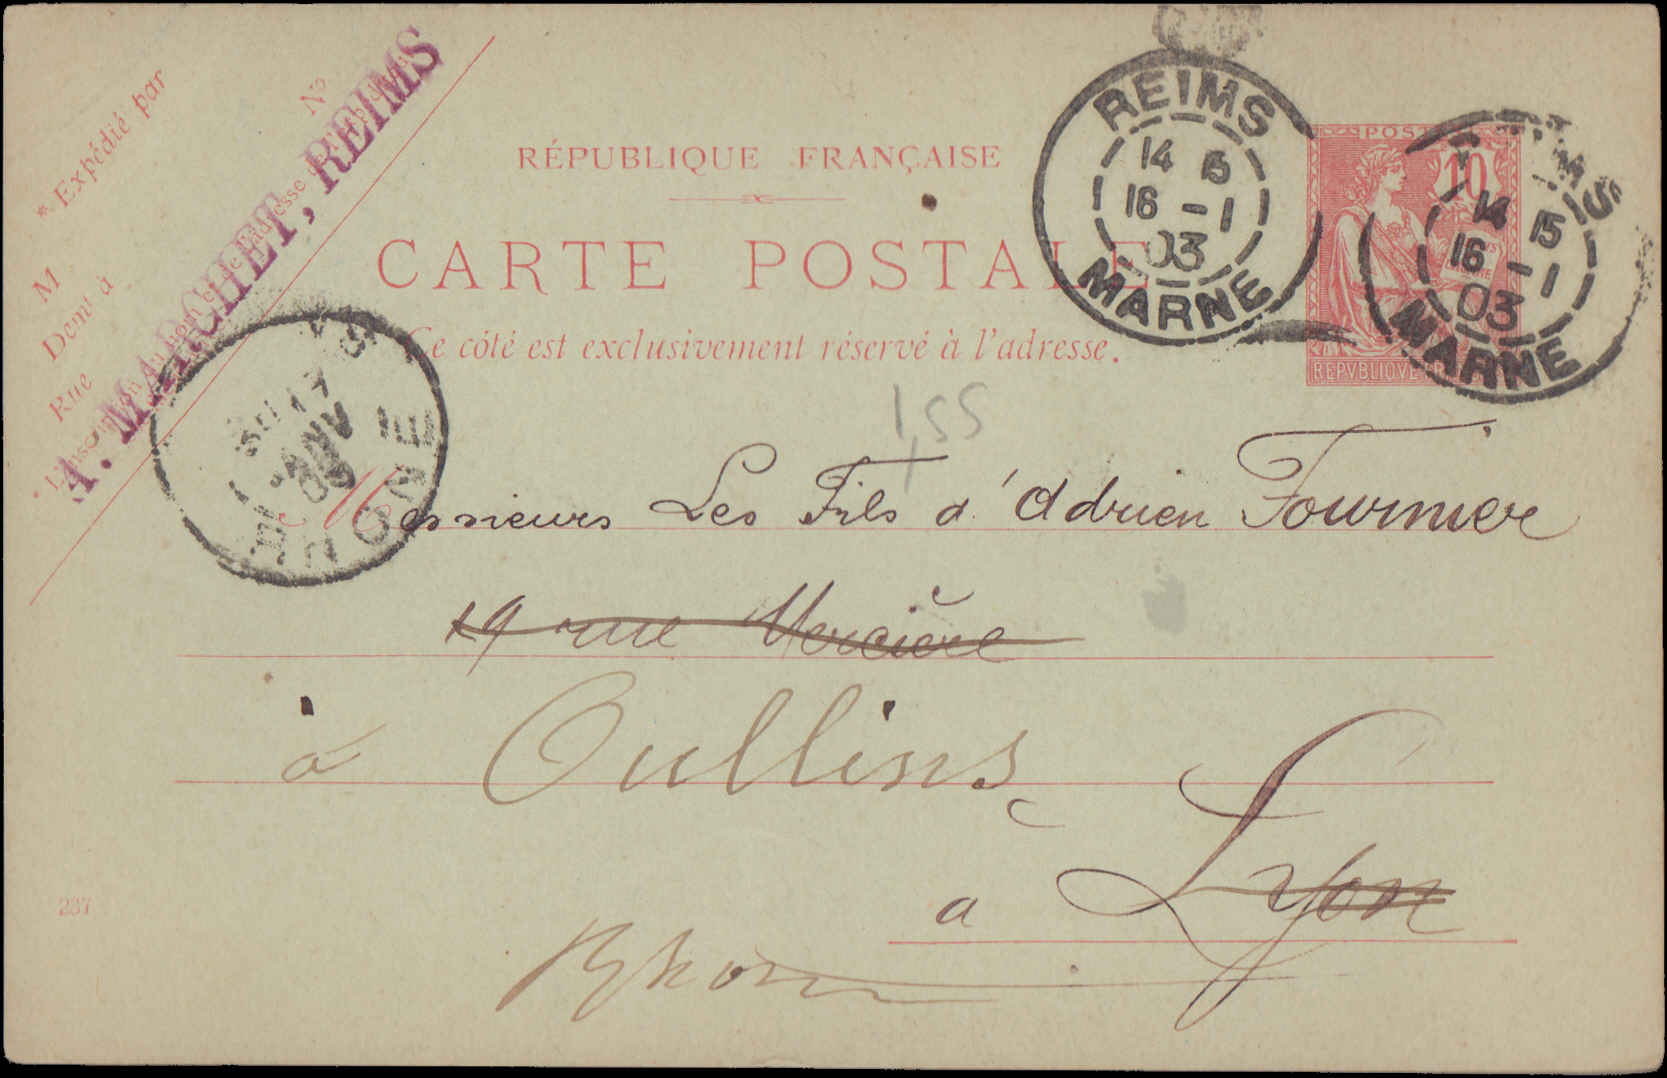 * Expédié par
M
Demt à
Rue
No
A. MARCHET, REIMS
RÉPUBLIQUE FRANÇAISE
CARTE POSTALE
Ce côté est exclusivement réservé à l'adresse.
REIMS
14 15
16 - 1
03
MARNE
POST
10
REPVBLIQVE FR
MS
14 15
16 - 1
03
MARNE
17
JANV
03
RHONE
1,55
Messieurs Les Fils d'Adrien Fournier
19 rue Mercière
à Oullins
a Lyon
Rhone
237